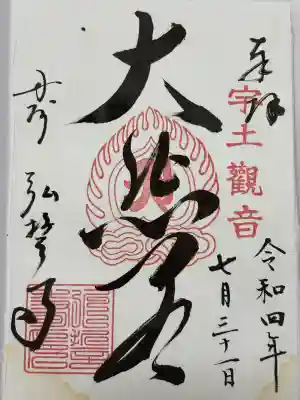 奉拝
宇土觀音
令和四年
七月三十一日
大悲
丹州 弘誓寺